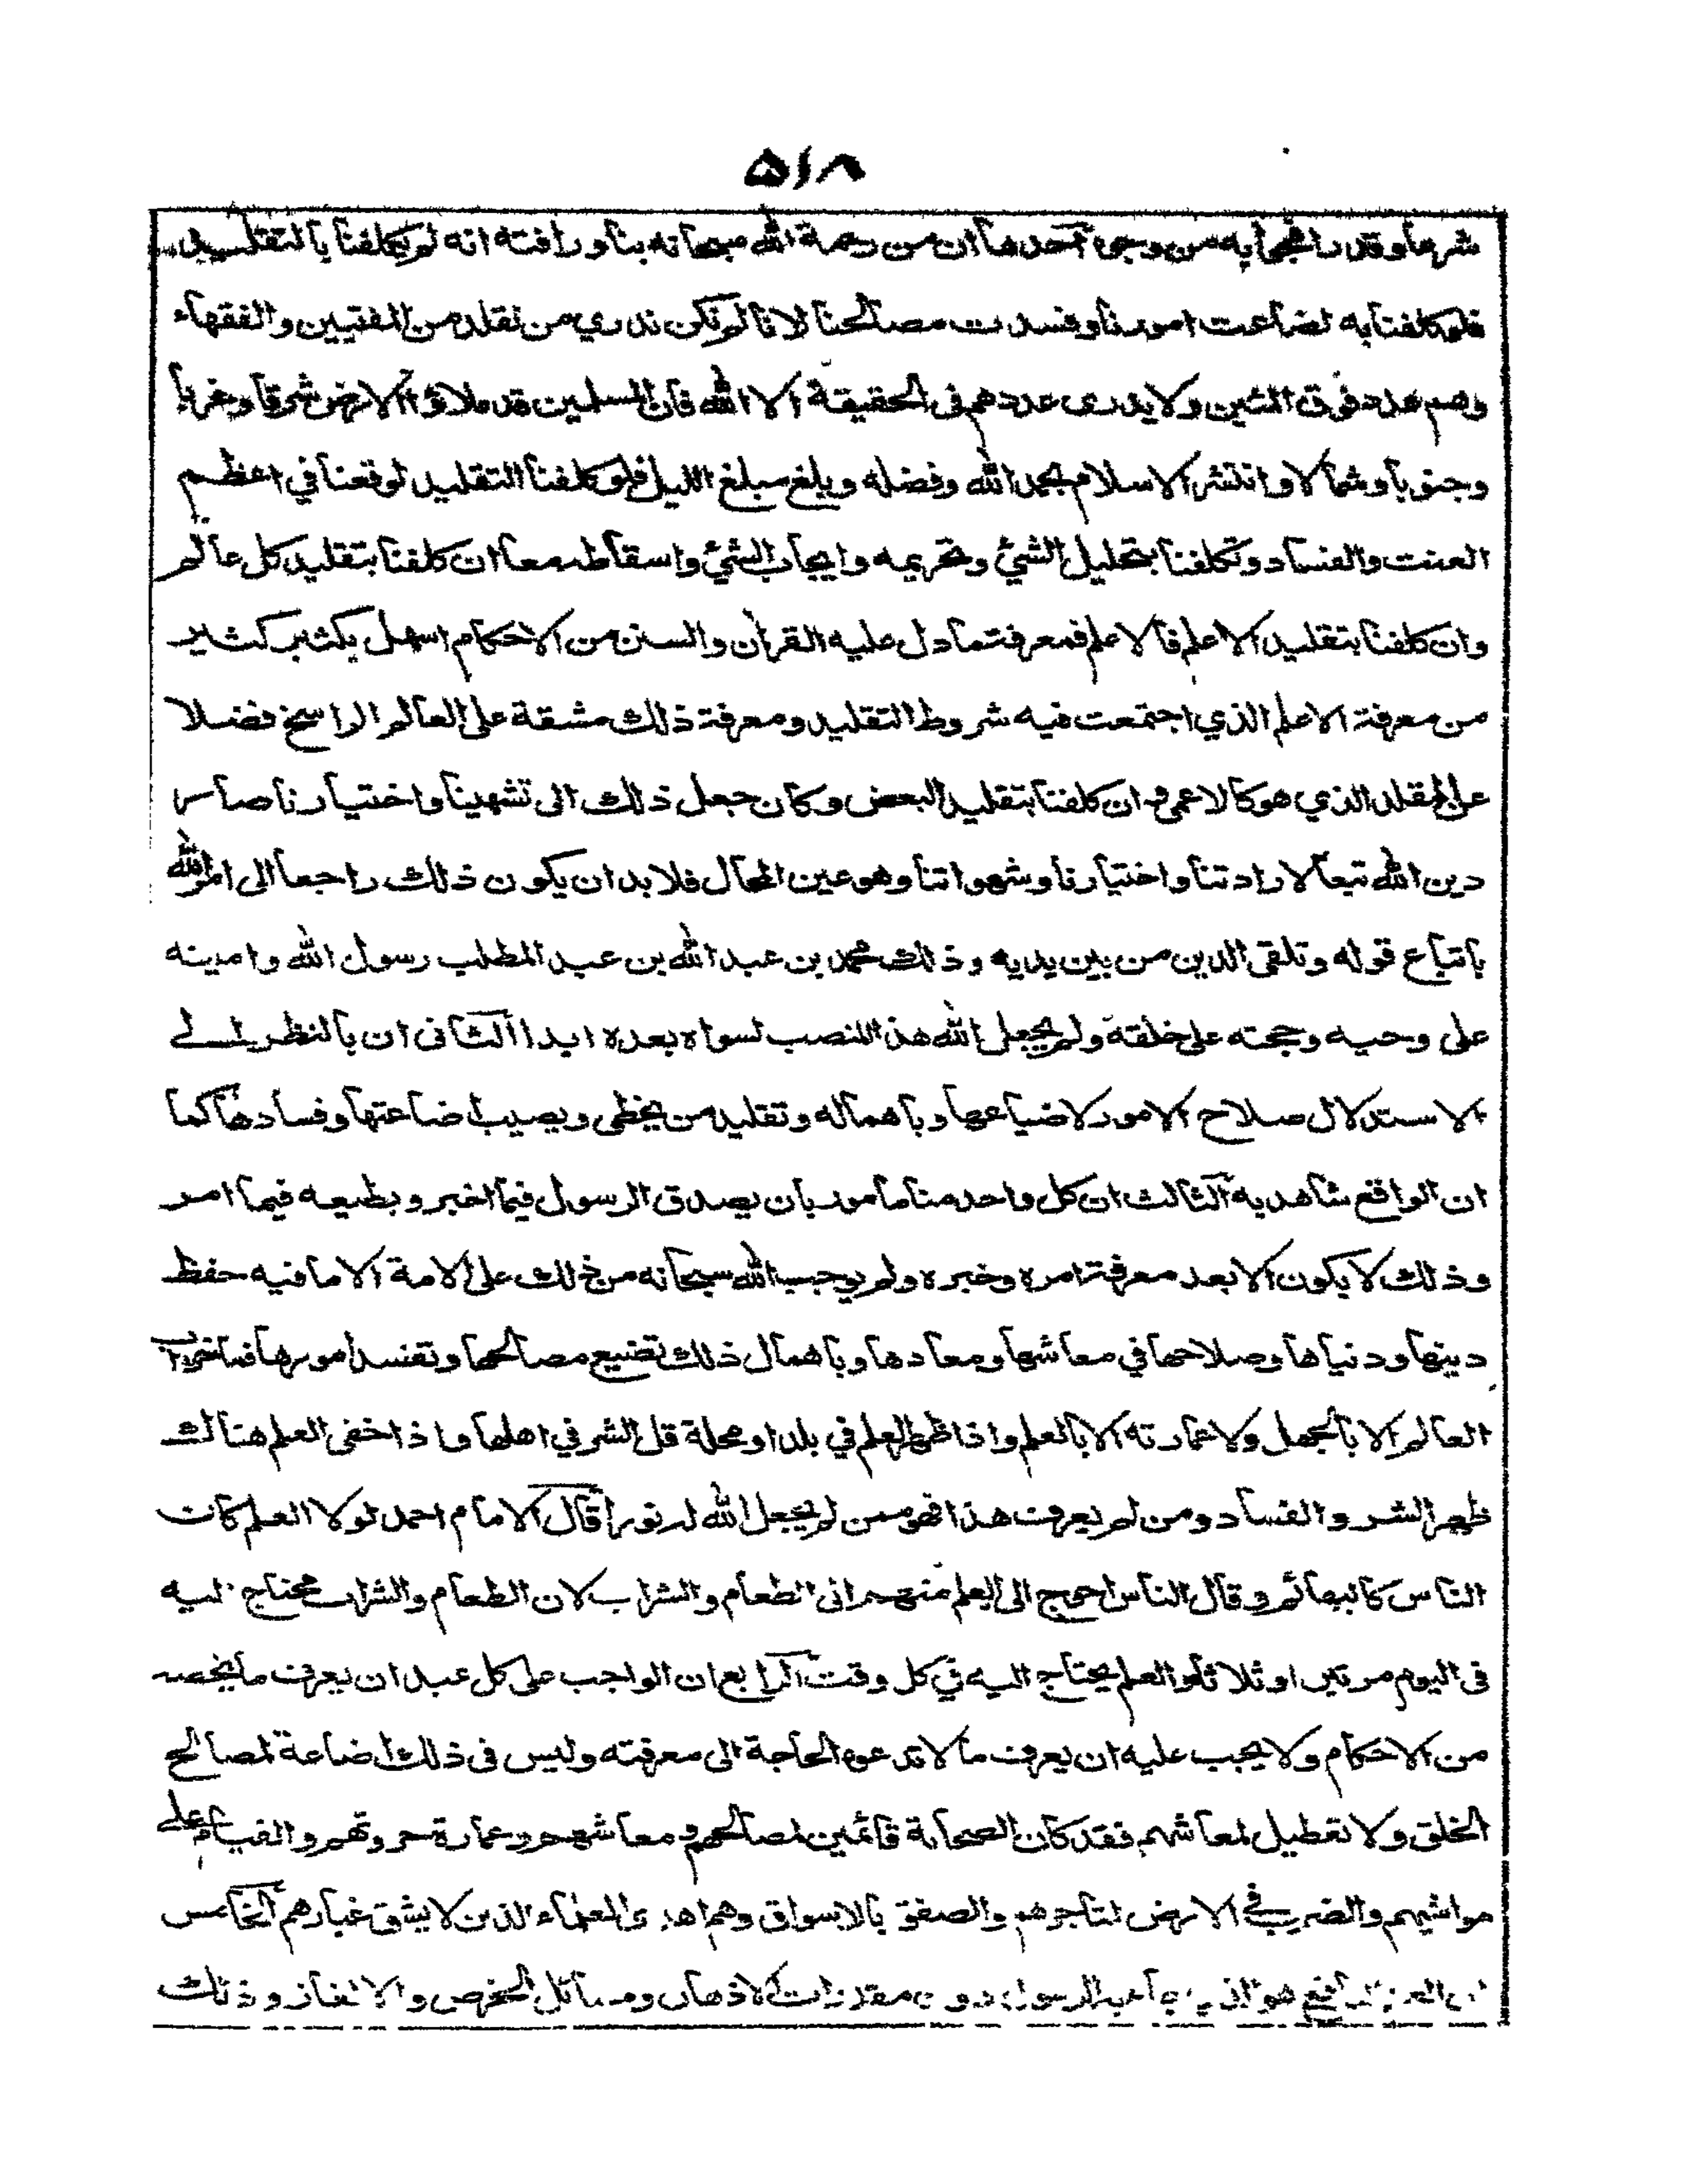 ٥١٨
شرعا وقدرا فجوابه من وجوه احدها ان من رحمة الله سبحانه بنا ورافته انه لم يكلفنا بالتقليد
فلو كلفنا به لضاعت امورنا وفسدت مصالحنا لانا لم نكن ندري من نقلد من المفتيين والفقهاء
وهم عدد فوق المئين ولا يدرى عددهم فى الحقيقة الا الله فان المسلمين قد ملاؤا الارض شرقا وغربا
وجنوبا وشمالا وانتشر الاسلام بحمد الله وفضله وبلغ مبلغ الليل فلو كلفنا التقليد لوقعنا في اعظم
العنت والفساد وتكلفنا بتحليل الشئ وتحريمه وايجاب الشئ واسقاطه معا ان كلفنا بتقليد كل عالم
وان كلفنا بتقليد الاعلم فالاعلم فمعرفة ما دل عليه القرأن والسنن من الاحكام اسهل بكثير كثير
من معرفة الاعلم الذي اجتمعت فيه شروط التقليد ومعرفة ذلك مشقة على العالم الراسخ فضلا
على المقلد الذي هو كالاعمى وان كلفنا بتقليد البعض وكان جعل ذلك الى تشهينا واختيارنا صار
دين الله تبعا لارادتنا واختيارنا وشهواتنا وهو عين المحال فلا بد ان يكون ذلك راجعا الى امر الله
باتباع قوله وتلقى الدين من بين يديه وذلك محمد بن عبد الله بن عبد المطلب رسول الله وامينه
على وحيه وحجته على خلقه ولم يجعل الله هذا المنصب لسواه بعده ابدا الثانى ان بالنظر الى
الاستدلال صلاح الامور لا ضياعها وباهماله وتقليد من يخطى ويصيب اضاعتها وفسادها كما
ان الواقع شاهد به الثالث ان كل واحد منا مامور بان يصدق الرسول فيما اخبر ويطيعه فيما امر
وذلك لا يكون الا بعد معرفة امره وخبره ولم يوجب الله سبحانه من ذلك على الامة الا ما فيه حفظ
دينها ودنياها وصلاحها في معاشها ومعادها وباهمال ذلك تضيع مصالحها وتفسد امورها فما خراب
العالم الا بالجهل ولا عمارته الا بالعلم واذا ظهر العلم في بلد او محلة قل الشر في اهلها واذا خفى العلم هنالك
ظهر الشر والفساد ومن لم يعرف هذا فهو ممن لم يجعل الله له نورا قال الامام احمد لولا العلم كان
الناس كالبهائم وقال الناس احوج الى العلم منهم الى الطعام والشراب لان الطعام والشراب محتاج اليه
فى اليوم مرتين او ثلاثا والعلم يحتاج اليه في كل وقت الرابع ان الواجب على كل عبد ان يعرف ما يخصه
من الاحكام ولا يجب عليه ان يعرف ما لا تدعوه الحاجة الى معرفته وليس فى ذلك اضاعة لمصالح
الخلق ولا تعطيل لمعاشهم فقد كان الصحابة قائمين لمصالحهم ومعاشهم وعمارة حروثهم والقيام على
مواشيهم والضرب في الارض لمتاجرهم والصفق بالاسواق وهم اهدى العلماء الذين لا يشق غبارهم الخامس
ان العلم النافع هو الذي جاء به الرسول دون مقدرات الاذهان ومسائل الخرص والالغاز وذلك